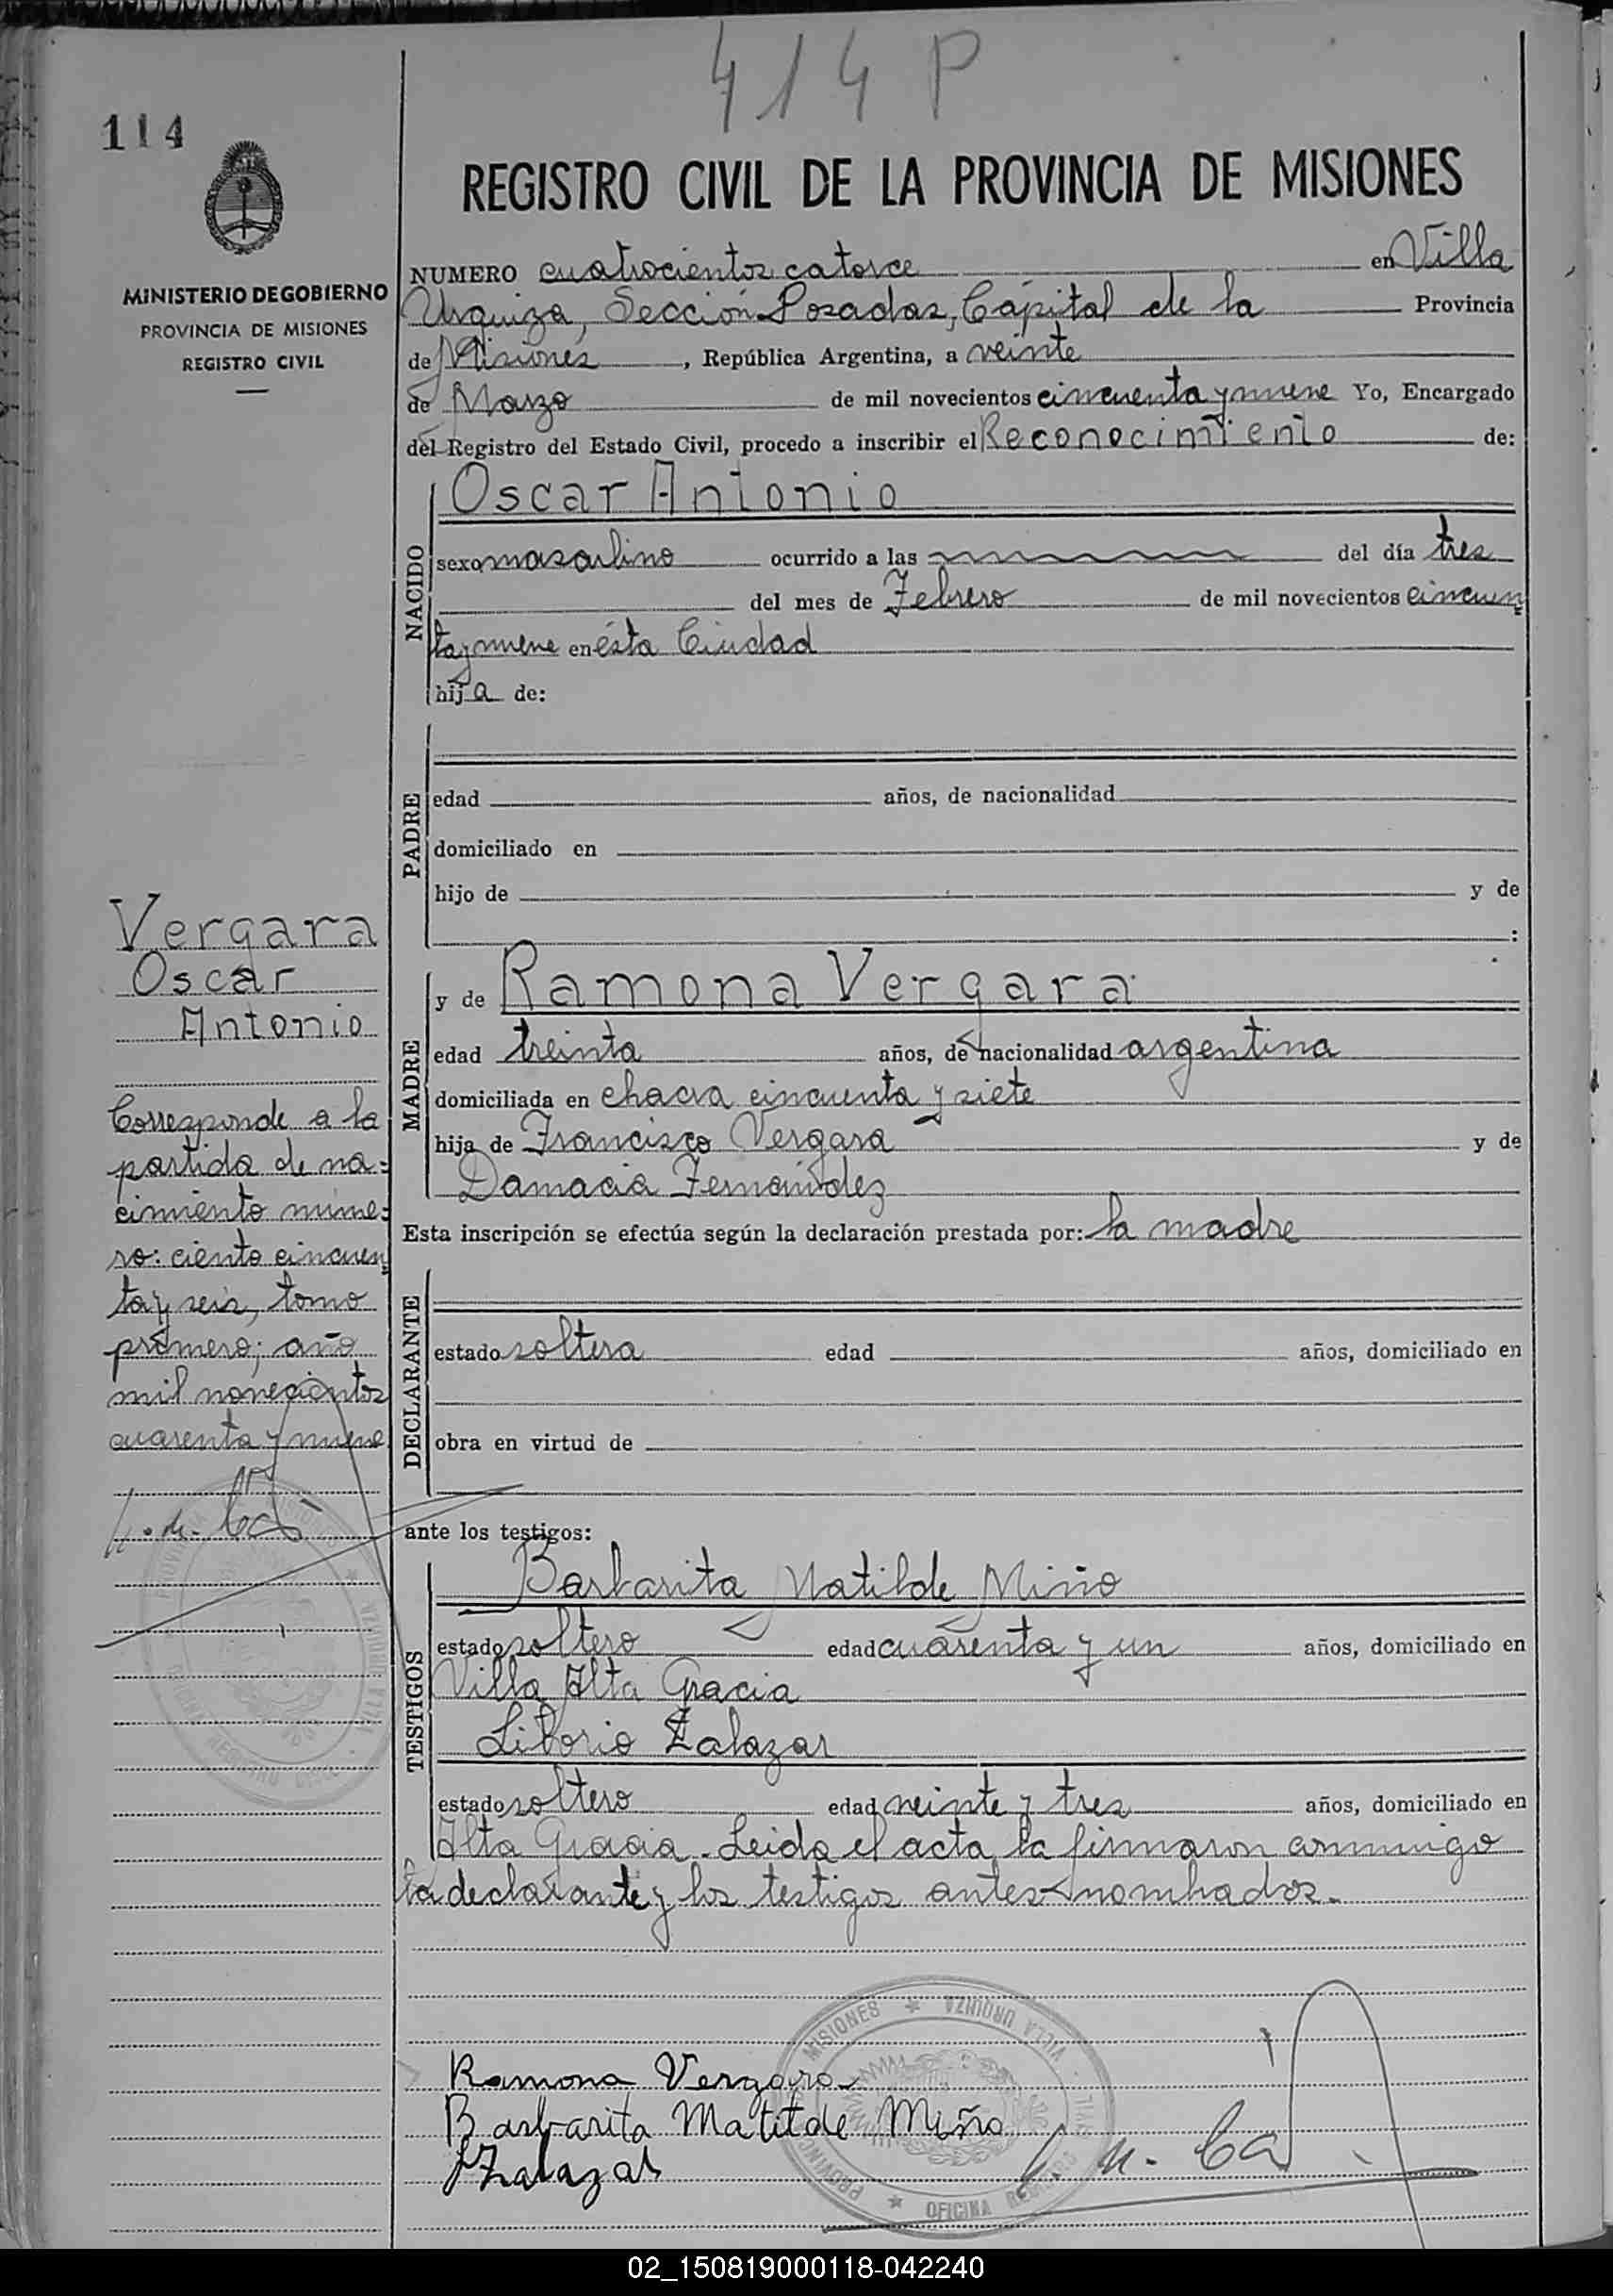 414 P
114
REGISTRO CIVIL DE LA PROVINCIA DE MISIONES
MINISTERIO DE GOBIERNO
PROVINCIA DE MISIONES
REGISTRO CIVIL
NUMERO cuatrocientos catorce en Villa
Urquiza, Sección Posadas, Cápital de la Provincia
de Misiones, República Argentina, a veinte
de Marzo de mil novecientos cincuenta y nueve Yo, Encargado
del Registro del Estado Civil, procedo a inscribir el Reconocimiento de:
NACIDO
Oscar Antonio
sexo masculino ocurrido a las del día tres
del mes de Febrero de mil novecientos cincuen
ta y nueve en ésta Ciudad
hij a de:
PADRE
edad años, de nacionalidad
domiciliado en
hijo de y de
:
Vergara
Oscar
Antonio
Corresponde a la
partida de na=
cimiento núme=
ro: ciento cincuen
ta y seis, tomo
primero; año
mil novecientos
cuarenta y nueve
MADRE
y de Ramona Vergara
edad treinta años, de nacionalidad argentina
domiciliada en chacra cincuenta y siete
hija de Francisco Vergara y de
Damacia Fernández
Esta inscripción se efectúa según la declaración prestada por: la madre
DECLARANTE
estado soltera edad años, domiciliado en
obra en virtud de
ante los testigos:
TESTIGOS
Barbarita Matilde Miño
estado soltero edad cuarenta y un años, domiciliado en
Villa Alta Gracia
Liborio Zalazar
estado soltero edad veinte y tres años, domiciliado en
Alta Gracia. Leida el acta la firmaron conmigo
la declarante y los testigos antes nombrados.
MISIONES * VILLA URQUIZA
OFICINA REGISTRO CIVIL
Ramona Vergara
Barbarita Matitde Miño
LZalazar
02_150819000118-042240